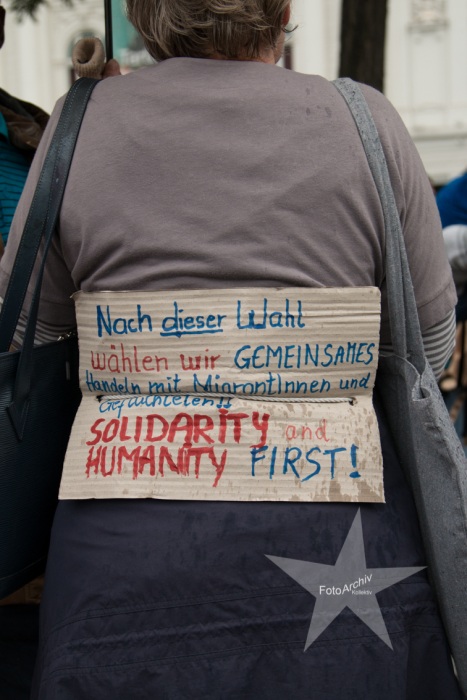 Nach dieser Wahl
wählen wir GEMEINSAMES
Handeln mit MigrantInnen und
Geflüchteten!!
SOLIDARITY and
HUMANITY FIRST!
FotoArchiv
Kollektiv